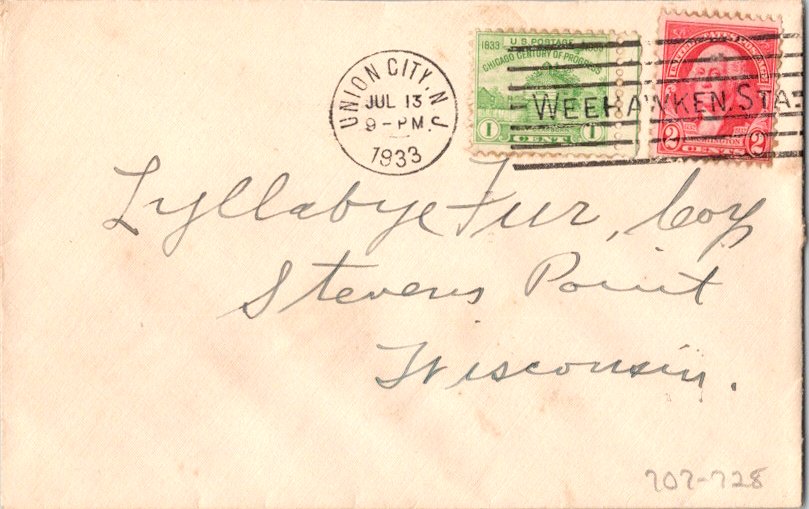 UNION CITY, N J
JUL 13
9-PM.
1933
1933 U.S. POSTAGE
CHICAGO CENTURY OF PROGRESS
1 CENT 1
UNITED STATES POSTAGE
WASHINGTON
2 CENTS 2
WEEHAWKEN. STA.
Lyllabye Fur, Coy
Stevens Point
Wisconsin.
707-728